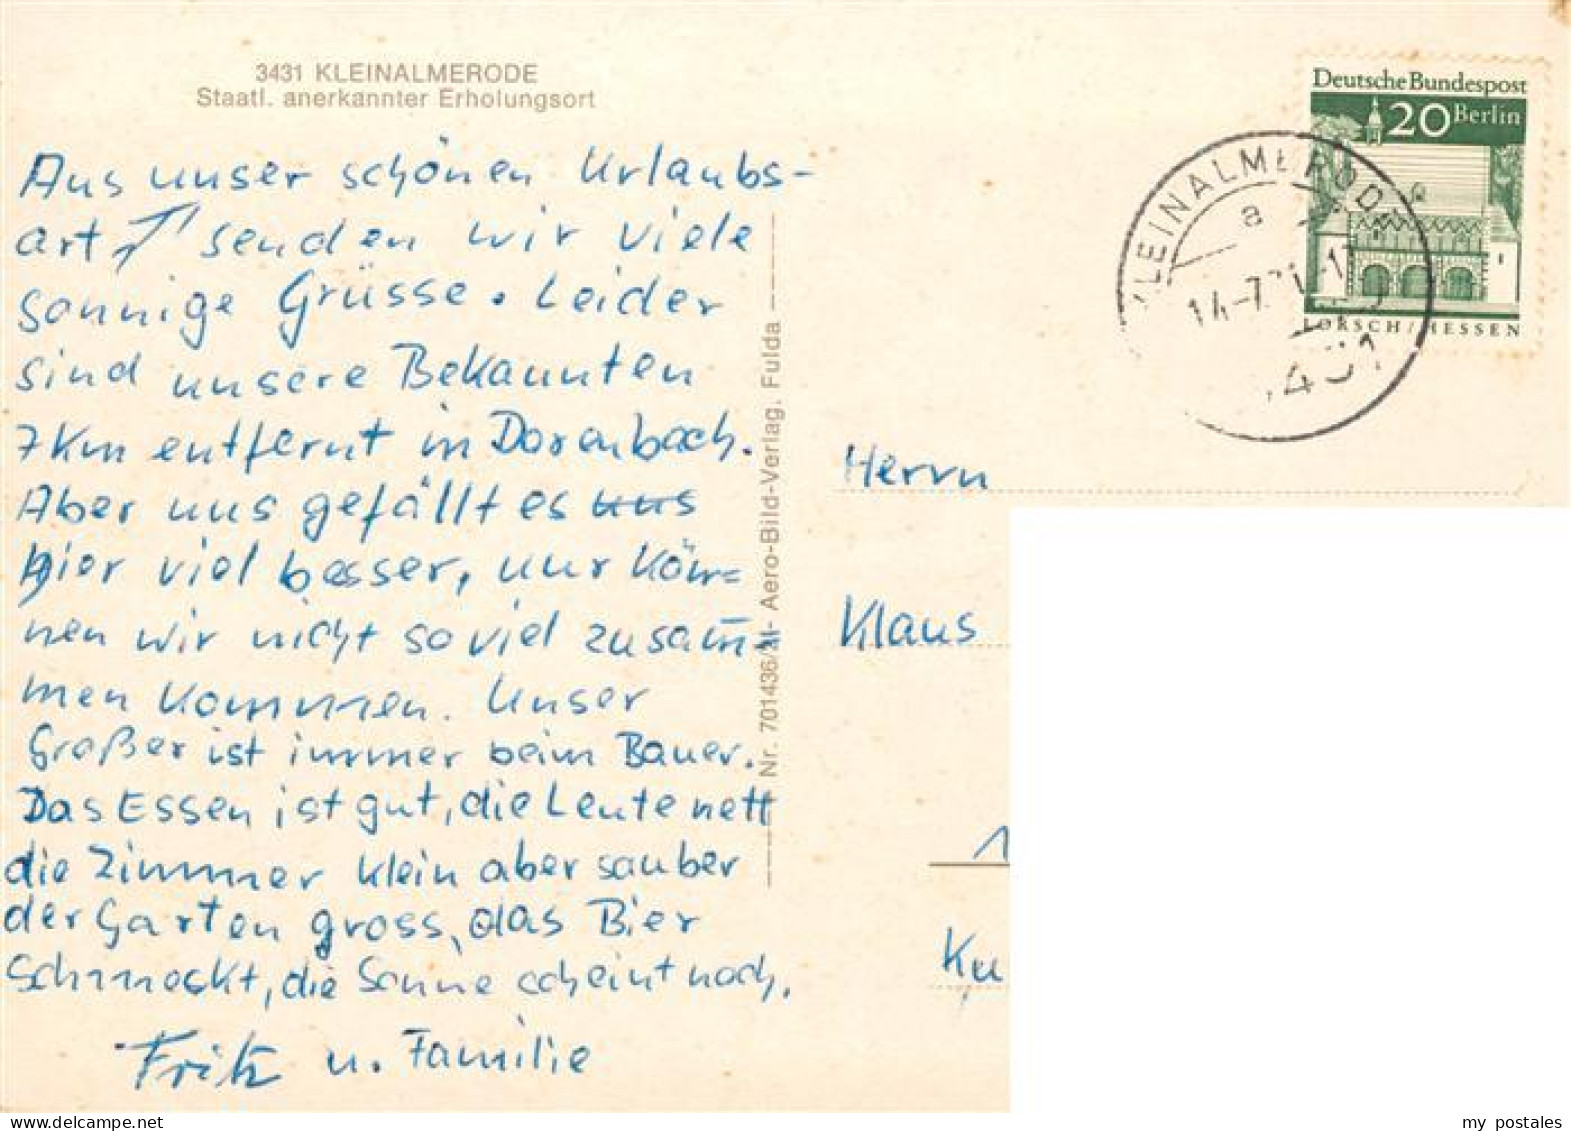 3431 KLEINALMERODE
Staatl. anerkannter Erholungsort
Aus unser schönen Urlaubs-
art senden wir viele
sonnige Grüsse. Leider
sind unsere Bekannten
7 Km entfernt in Dorenbach.
Aber uns gefällt es uns
hier viel besser, nur Kön=
nen wir nicht so viel zusam=
men Kommen. Unser
Großer ist immer beim Bauer.
Das Essen ist gut, die Leute nett
die Zimmer Klein aber sauber
der Garten gross, das Bier
Schmeckt, die Sonne scheint noch.
Fritz u. Familie
Nr. 701436/ - Aero-Bild-Verlag. Fulda
Deutsche Bundespost
20 Berlin
LORSCH/HESSEN
KLEINALMERODE
a
Herrn
Klaus
1
Ku
my postales